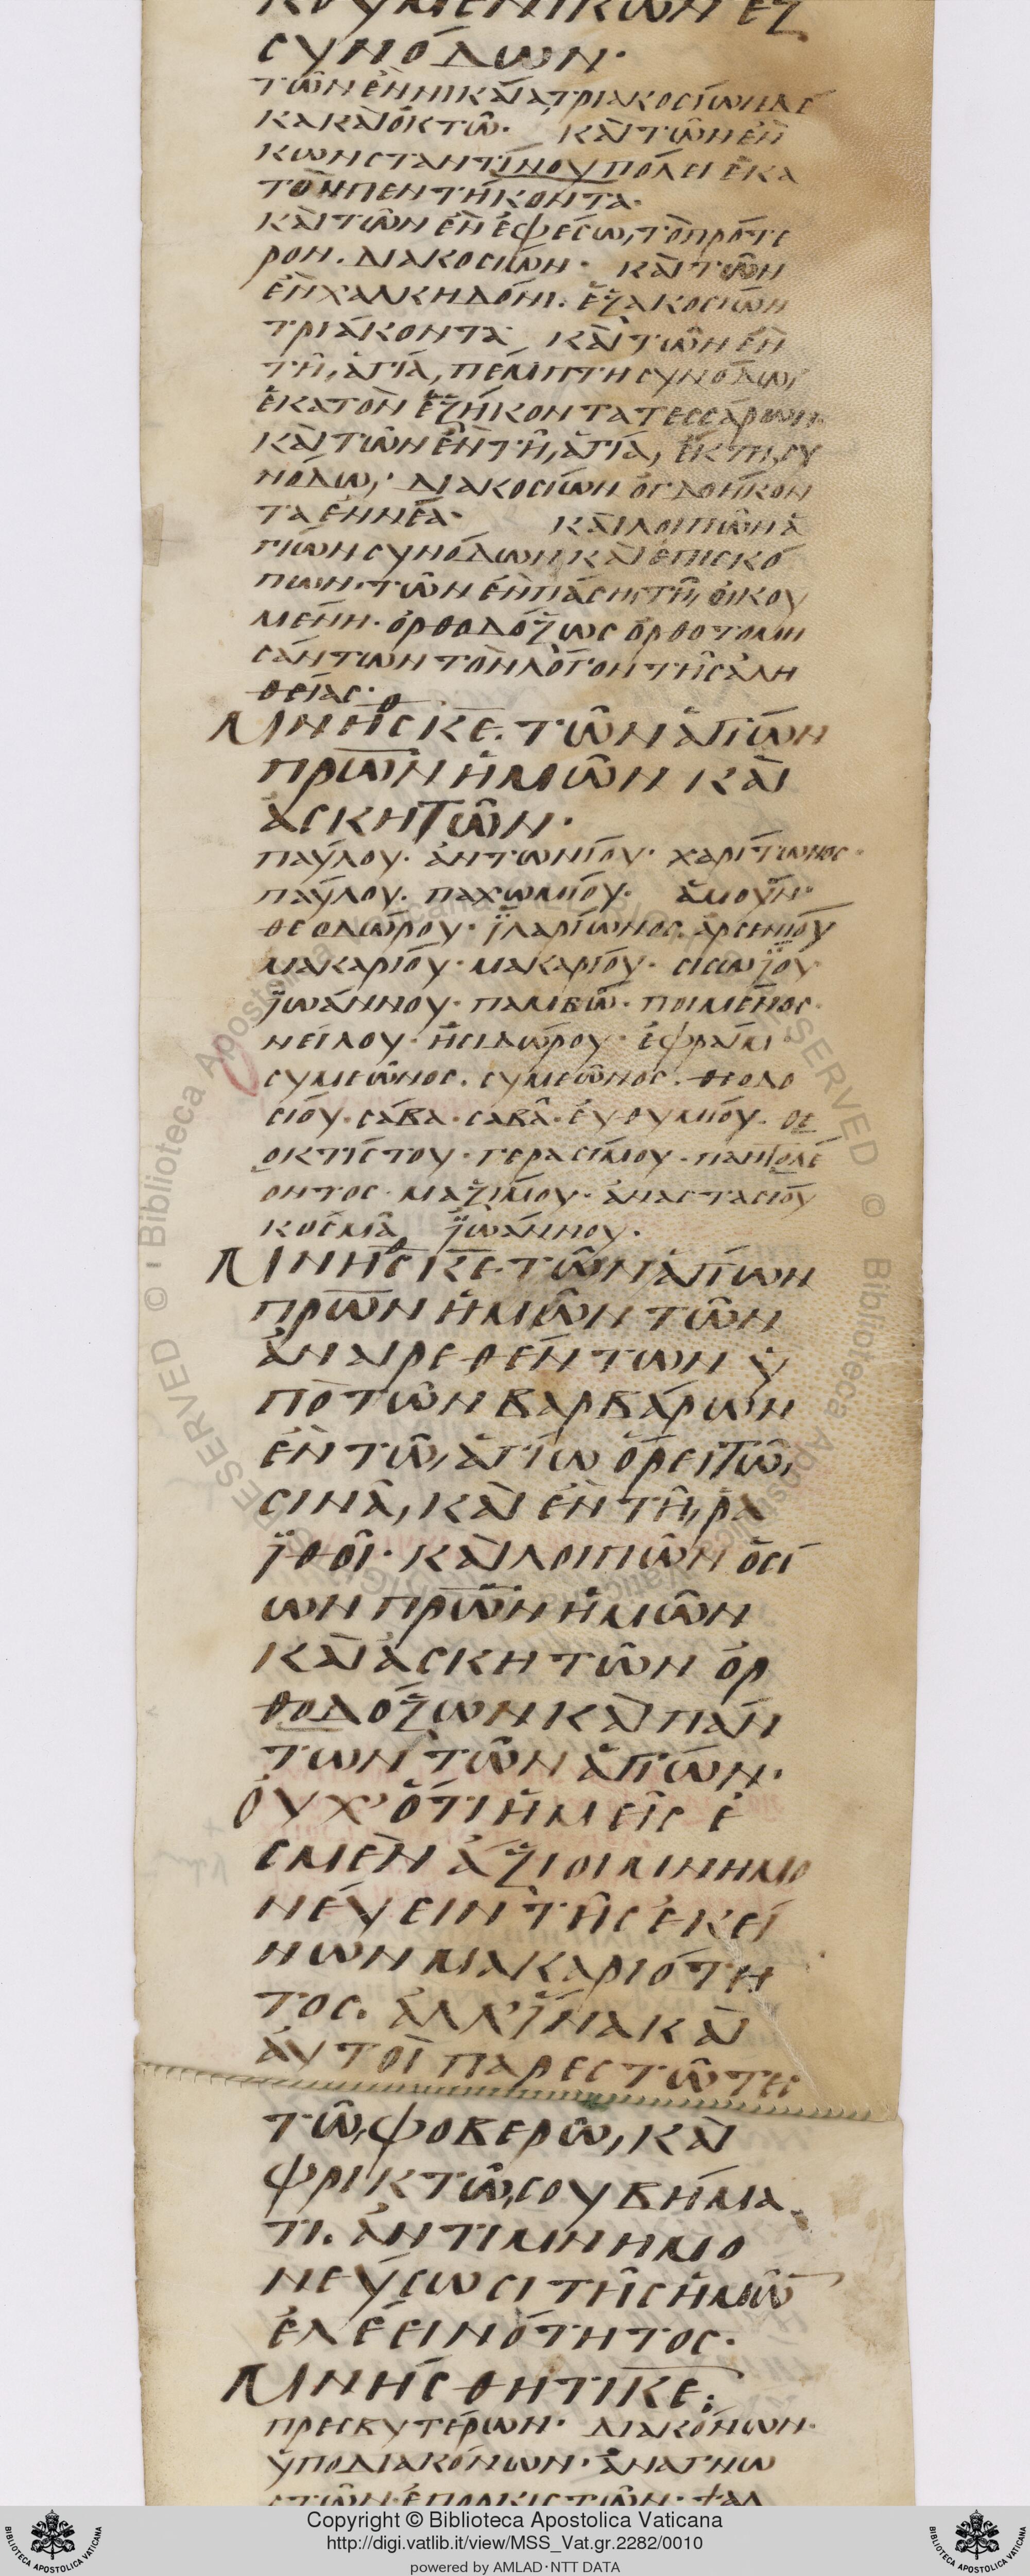 κουμενικῶν ἓξ
συνόδων·
τῶν ἐν νικαία τριακοσίων δέ
κα καὶ ὀκτώ· καὶ τῶν ἐν
κωνσταντίνου πόλει ἑκα
τὸν πεντήκοντα·
καὶ τῶν ἐν ἐφέσω, τὸ πρότε
ρον. διακοσίων· καὶ τῶν
ἐν χαλκηδόνι. ἑξακοσίων
τριάκοντα καὶ τῶν ἐν
τῆ, ἁγία, πέμπτη συνόδω,
ἑκατὸν ἑξήκοντα τεσσάρων
καὶ τῶν ἐν τῆ, ἁγία, ἕκτη, συ
νόδω,· διακοσίων ὀγδοήκον
τα ἐννέα· καὶ λοιπῶν ἁ
γίων συνόδων καὶ ἐπισκό
πων· τῶν ἐν πάση, τῆ, οἰκου
μένη· ὀρθοδόξως ὀρθοτομη
σάντων τὸν λόγον τῆς ἀλη
θείας·
Μνήσθ κε. τῶν ἁγίων
πρων ἡμῶν καὶ
ἀσκητῶν·
παύλου· ἀντωνίου· χαρίτωνος·
παύλου. παχωμίου· ἀμοῦν·
θεοδώρου· ϊλαρίωνος. ἀρσενίου
μακαρίου· μακαρίου· σισωΐου·
ϊωάννου· παμβῶ· ποιμένος·
νείλου· ἡσιδώρου· ἐφραὶμ·
συμεῶνος. συμεῶνος. θεοδο
σίου· σάβα· σαβᾶ· εὐθυμίου· θε
οκτίστου· γερασίμου· παντολέ
οντος· μαξίμου· ἀναστασίου
κοσμᾶ ϊωάννου·
Μνήσθ κε. τῶν ἁγίων
πρων ἡμῶν τῶν
ἀναιρεθέντων ὑ
πὸ τῶν βαρβάρων
ἐν τῶ, ἁγίω ὄρει τῶ,
σινᾶ, καὶ ἐν τῆ, ρα
ϊθοῦ· καὶ λοιπῶν ὁσί
ων πρων ἡμῶν
καὶ ἀσκητῶν ὀρ
θοδόξων καὶ πάν
των τῶν ἁγίων·
οὐχ' ὅτι ἡμεῖς ἐ
σμὲν ἄξιοι μνημο
νεύειν τῆς ἐκεί
νων μακαριότη
τος. ἀλλ' ἵνα καὶ
αὐτοὶ παρεστῶτες
τῶ, φοβερῶ, καὶ
φρικτῶ, σου βήμα
τι. ἀντιμνημο
νεύσωσι τῆς ἡμῶ
ἐλεεινότητος·
Μνήσθητι κε·
πρεσβυτέρων· διακόνων·
ὑποδιακόνων· ἀναγνω
στῶν· ἐπορκιστῶν· ψαλ
Copyright © Biblioteca Apostolica Vaticana
http://digi.vatlib.it/view/MSS_Vat.gr.2282/0010
powered by AMLAD·NTT DATA